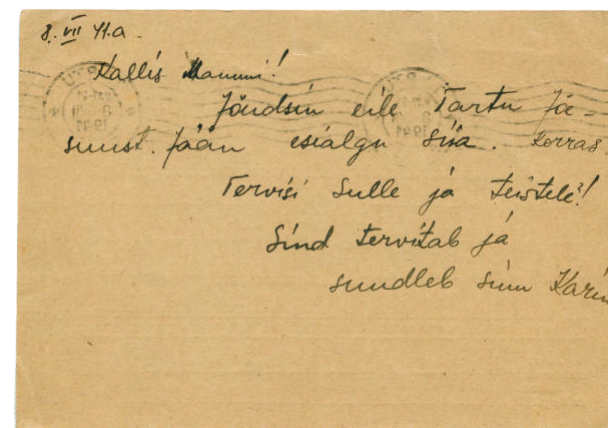 8. VII 41.a.
Kallis Mammi!
Jõudsin eile Tartu Jä-
sunst. Jään esialgu siia. Korras
Tervisi Sulle ja teistele!
Sind tervitab ja
suudleb sinu Karin